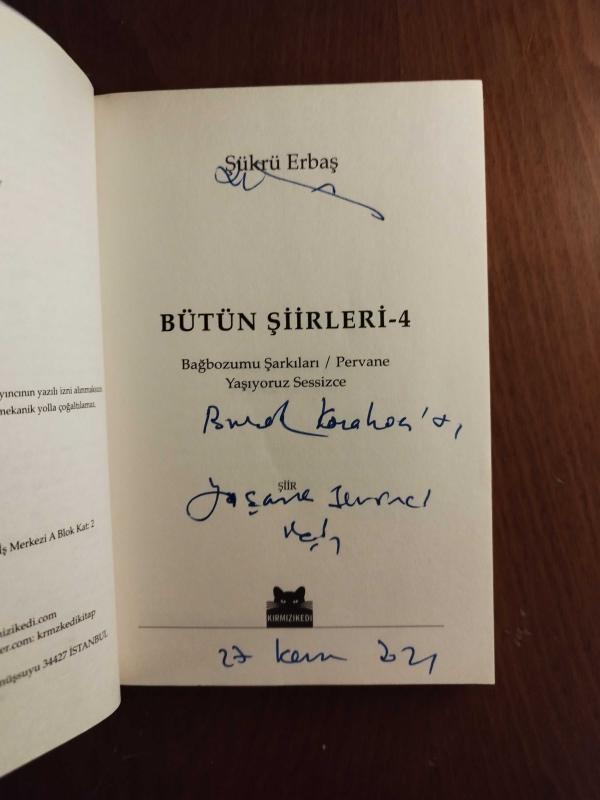 yıncının yazılı izni alınmaksızın
mekanik yolla çoğaltılamaz.
İş Merkezi A Blok Kat: 2
mizikedi.com
er.com: krmzkedikitap
nüşsuyu 34427 İSTANBUL
Şükrü Erbaş
BÜTÜN ŞİİRLERİ-4
Bağbozumu Şarkıları / Pervane
Yaşıyoruz Sessizce
Burak
ŞİİR
Yaşama sevinci
KIRMIZIKEDİ
27 Kasım 2021